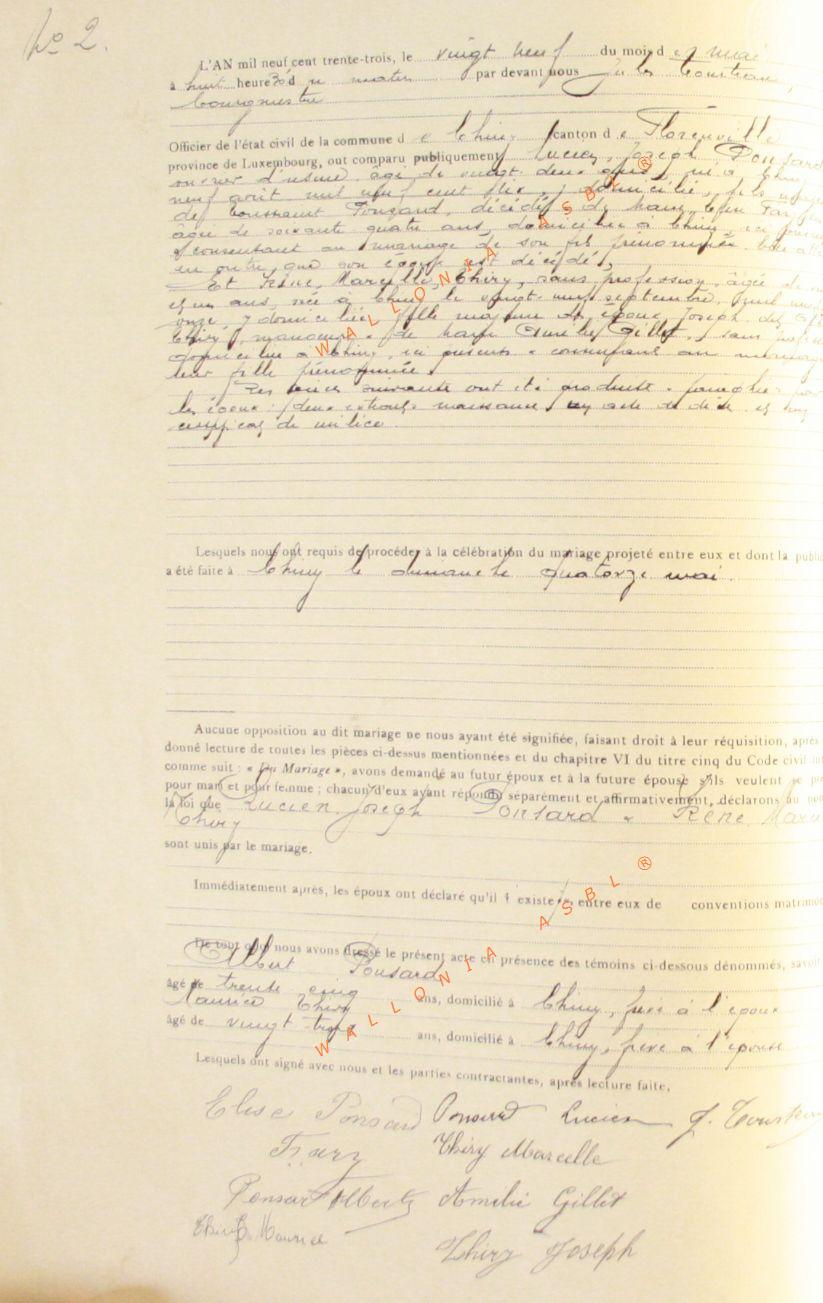 No 2.
L'AN mil neuf cent trente-trois, le vingt neuf du mois de mai
à huit heures du matin par devant nous Jules
bourgmestre
Officier de l'état civil de la commune de Chiny canton de Florenville
province de Luxembourg, ont comparu publiquement Lucien, Joseph Ponsard
ouvrier d'usine âgé de vingt deux ans, né à Chiny
neuf avril mil neuf cent , y domicilié, fils majeur
de Toussaint Ponsard, décédé, & de
âgée de soixante quatre ans, domiciliée à Chiny, ici
& consentant au mariage de son fils prénommé
en outre que son époux est décédé,
Et Marcelle Thiry, sans profession, âgée de
et un ans, née à Chiny le vingt septembre mil
onze, y domiciliée, fille majeure des époux Joseph
Thiry, manoeuvre & de Gillet, sans
domiciliés à Chiny, ici présents & consentant au mariage
leur fille prénommée.
Les pièces suivantes ont été produites
les époux : deux extraits naissance, un acte de décès et un
certificat de milice.
Lesquels nous ont requis de procéder à la célébration du mariage projeté entre eux et dont la public
a été faite à Chiny le dimanche quatorze mai.
Aucune opposition au dit mariage ne nous ayant été signifiée, faisant droit à leur réquisition, après
donné lecture de toutes les pièces ci-dessus mentionnées et du chapitre VI du titre cinq du Code civil
comme suit : « Du Mariage », avons demandé au futur époux et à la future épouse s'ils veulent se
pour mari et pour femme ; chacun d'eux ayant répondu séparément et affirmativement, déclarons au nom
la loi que Lucien Joseph Ponsard &
Thiry
sont unis par le mariage.
Immédiatement après, les époux ont déclaré qu'il existe entre eux de conventions matrimo
De tout quoi nous avons dressé le présent acte en présence des témoins ci-dessous dénommés, savoir
Albert Ponsard
âgé de trente cinq ans, domicilié à Chiny, frère à l'époux
Maurice Thiry
âgé de vingt trois ans, domicilié à Chiny, frère à l'épouse
Lesquels ont signé avec nous et les parties contractantes, après lecture faite.
Elise Ponsard Ponsard Lucien J.
Thiry Marcelle
Ponsard Albert Amélie Gillet
Thiry Maurice
Thiry Joseph
WALLONIA ASBL ®
WALLONIA ASBL ®